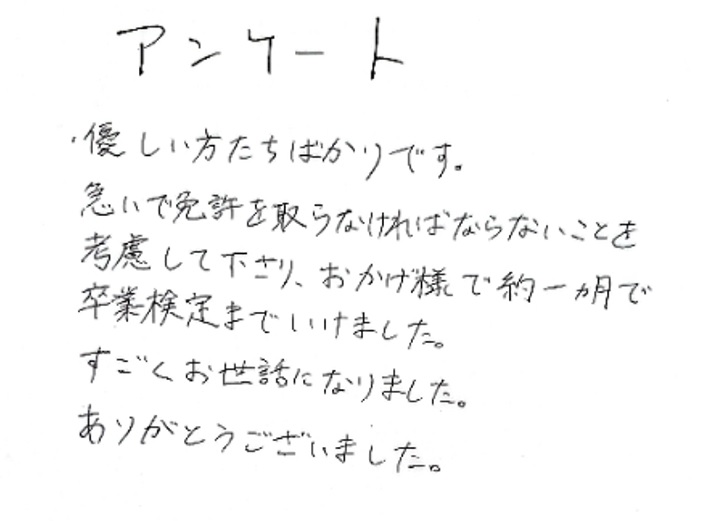 アンケート
・優しい方たちばかりです。
急いで免許を取らなければならないことを
考慮して下さり、おかげ様で約一ヵ月で
卒業検定までいけました。
すごくお世話になりました。
ありがとうございました。